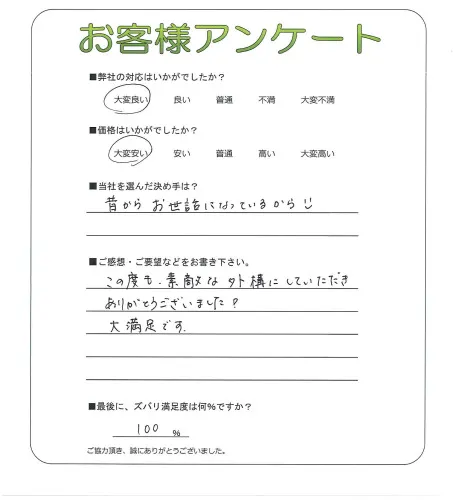 お客様アンケート
■弊社の対応はいかがでしたか？
大変良い 良い 普通 不満 大変不満
■価格はいかがでしたか？
大変安い 安い 普通 高い 大変高い
■当社を選んだ決め手は？
昔から お世話になっているから!!
■ご感想・ご要望などをお書き下さい。
この度も、素敵な外構にしていただき
ありがとうございました？
大満足です.
■最後に、ズバリ満足度は何％ですか？
100 ％
ご協力頂き、誠にありがとうございました。